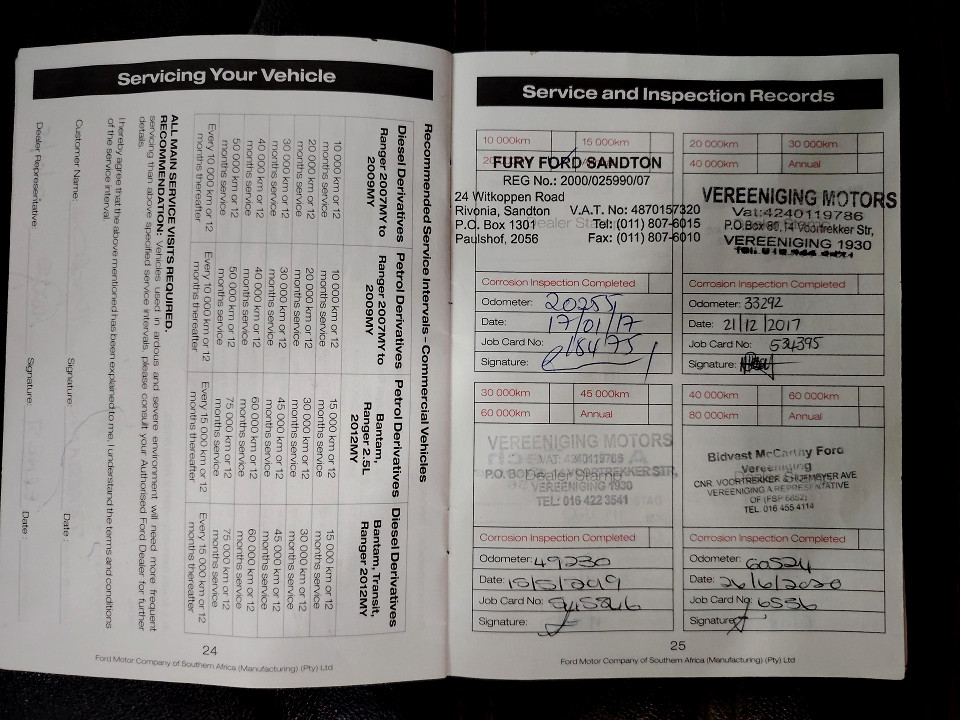 Servicing Your Vehicle
Recommended Service Intervals - Commercial Vehicles
Diesel Derivatives
Ranger 2007MY to
2009MY
10 000 km or 12
months service
20 000 km or 12
months service
30 000 km or 12
months service
40 000 km or 12
months service
50 000 km or 12
months service
Every 10 000 km or 12
months thereafter
Petrol Derivatives
Ranger 2007MY to
2009MY
10 000 km or 12
months service
20 000 km or 12
months service
30 000 km or 12
months service
40 000 km or 12
months service
50 000 km or 12
months service
Every 10 000 km or 12
months thereafter
Petrol Derivatives
Bantam,
Ranger 2.5L
2012MY
15 000 km or 12
months service
30 000 km or 12
months service
45 000 km or 12
months service
60 000 km or 12
months service
75 000 km or 12
months service
Every 15 000 km or 12
months thereafter
Diesel Derivatives
Bantam, Transit,
Ranger 2012MY
15 000 km or 12
months service
30 000 km or 12
months service
45 000 km or 12
months service
60 000 km or 12
months service
75 000 km or 12
months service
Every 15 000 km or 12
months thereafter
ALL MAIN SERVICE VISITS REQUIRED.
RECOMMENDATION: Vehicles used in ardous and severe environment will need more frequent
servicing than above specified service intervals, please consult your Authorised Ford Dealer for further
details.
I hereby agree that the above mentioned has been explained to me, I understand the terms and conditions
of the service interval
Customer Name: Signature Date :
Dealer Representative: Signature: Date:
24
Ford Motor Company of Southern Africa (Manufacturing) (Pty) Ltd
Service and Inspection Records
10 000km 15 000km
FURY FORD SANDTON
REG No.: 2000/025990/07
24 Witkoppen Road
Rivonia, Sandton V.A.T. No: 4870157320
P.O. Box 1301 Dealer Stamp Tel: (011) 807-6015
Paulshof, 2056 Fax: (011) 807-6010
Corrosion Inspection Completed
Odometer:
Date: 17/01/17
Job Card No: 
Signature:
20 000km 30 000km
40 000km Annual
VEREENIGING MOTORS
Vat:4240119786
P.O.Box 80,14 Voortrekker Str,
VEREENIGING 1930
Corrosion Inspection Completed
Odometer: 33292
Date: 21/12/2017
Job Card No: 534395
Signature:
30 000km 45 000km
60 000km Annual
VEREENIGING MOTORS
VAT: 4240119786
P.O. BOX VOORTREKKER STR,
Dealer Stamp
VEREENIGING 1930
TEL: 016 422 3541
Corrosion Inspection Completed
Odometer: 49230
Date: 15/5/2019
Job Card No: 
Signature:
40 000km 60 000km
80 000km Annual
Bidvest McCarthy Ford
Vereeniging
CNR VOORTREKKER & AVE
VEREENIGING A REPRESENTATIVE
OF (FSP 6852)
TEL. 016 455 4114
Corrosion Inspection Completed
Odometer: 60524
Date: 26/6/2020
Job Card No: 6536
Signature:
25
Ford Motor Company of Southern Africa (Manufacturing) (Pty) Ltd